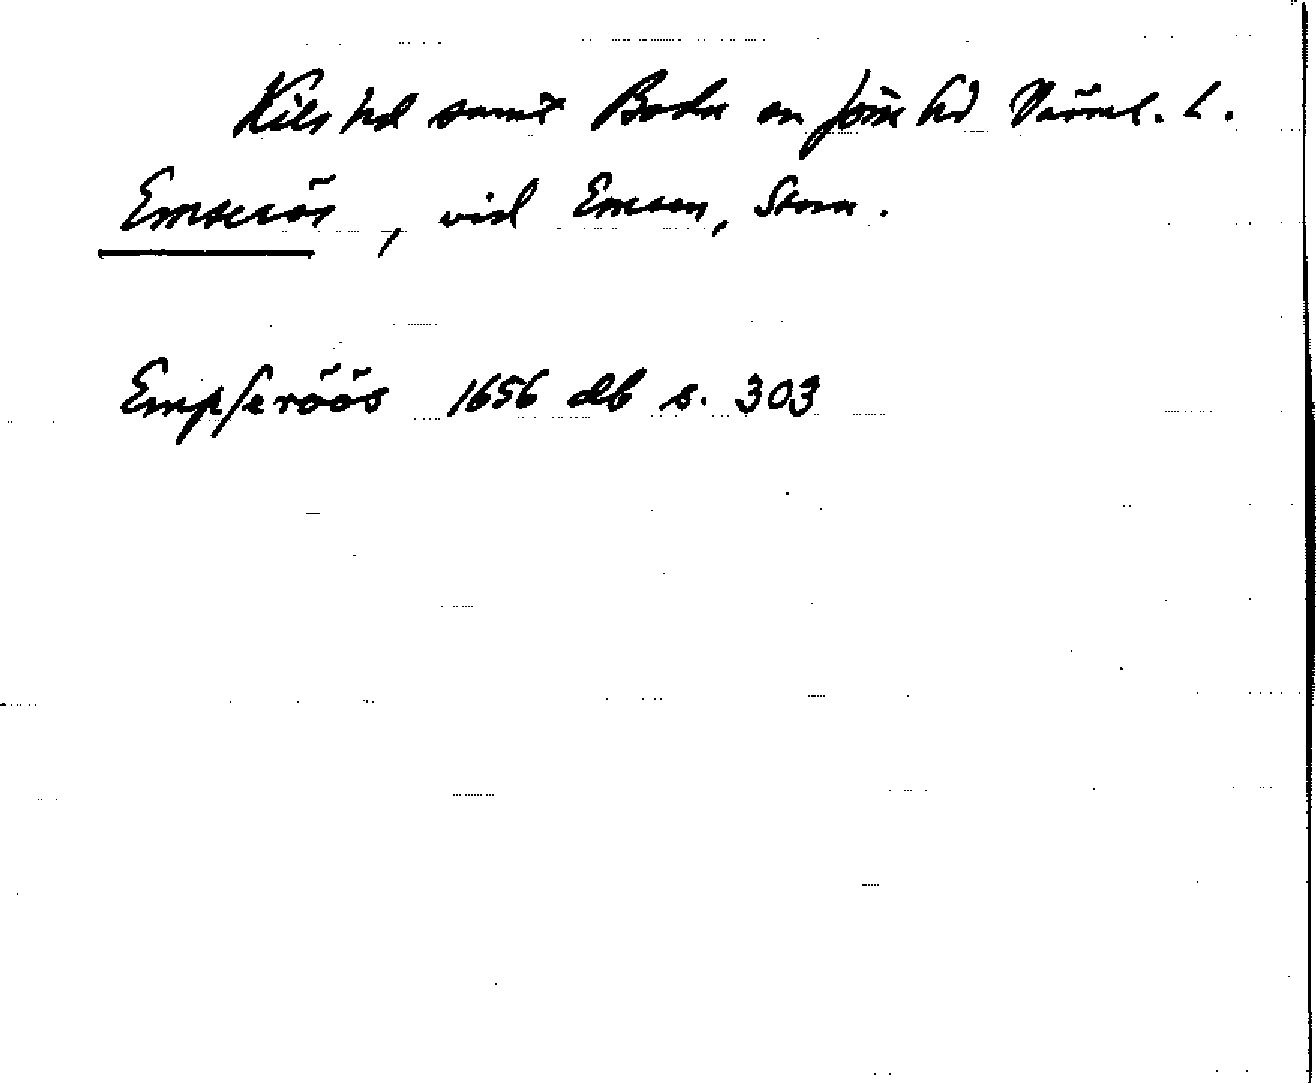 Kils hd samt Boda sn Jösse hd Värml. L.
Emserös, vid Emsen, Stora.
Empseröös 1656 db s. 303